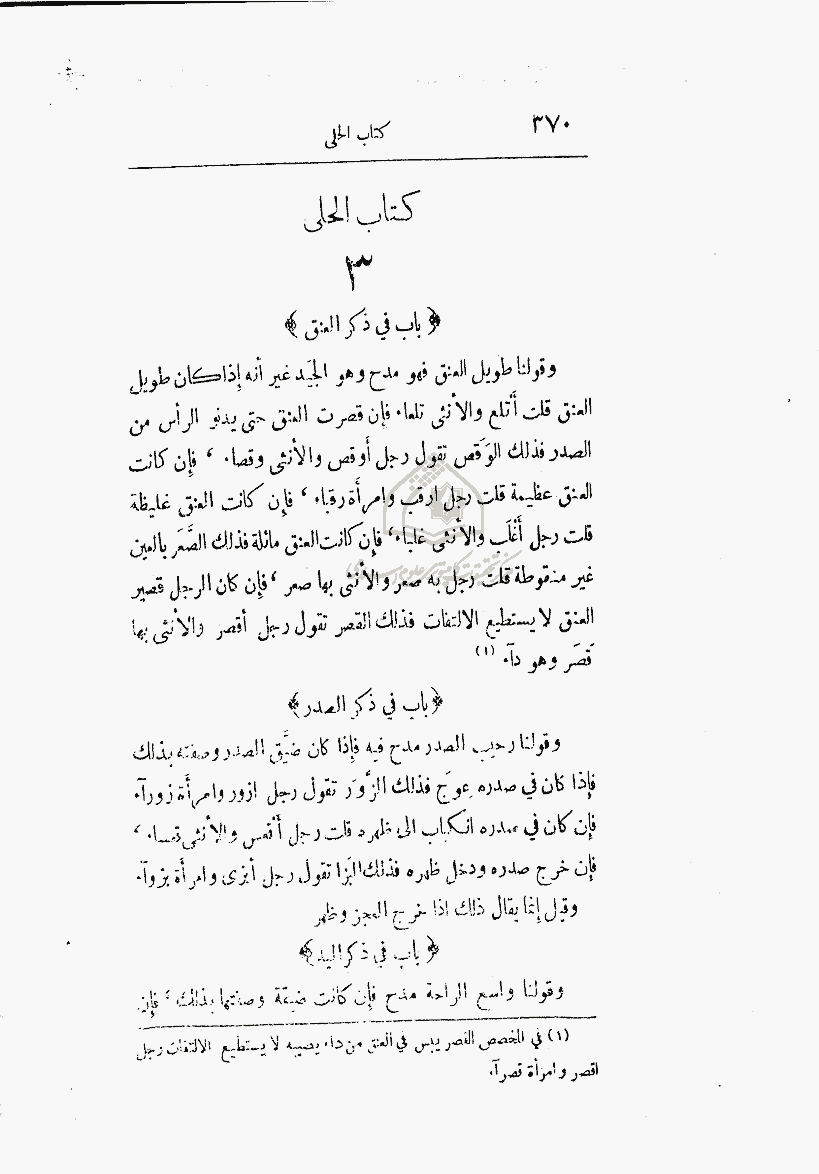 ٣٧٠
كتاب الحلى
كتاب الحلى
٣
﴿ باب في ذكر العنق ﴾
وقولنا طويل العنق فهو مدح وهو الجَيَد غير أنه إذا كان طويل
العنق قلت أَتلع والأنثى تلعاء فإن قصرت العنق حتى يدنو الرأس من
الصدر فذلك الوَقَص تقول رجل أوقص والأنثى وقصاء ، فإن كانت
العنق عظيمة قلت رجل ارقب وامرأة رقباء ، فإن كانت العنق غليظة
قلت رجل أَغْلَب والأنثى غلباء ، فإن كانت العنق مائلة فذلك الصَّعَر بالعين
غير منقوطة قلت رجل به صعر والأنثى بها صعر ، فإن كان الرجل قصير
العنق لا يستطيع الالتفات فذلك القصر تقول رجل أقصر والأنثى بها
قَصَر وهو دآء (١)
﴿ باب في ذكر الصدر ﴾
وقولنا رحيب الصدر مدح فيه فإذا كان ضَيَّق الصدر وصفته بذلك
فإذا كان في صدره عِوَج فذلك الزَّوَر تقول رجل ازور وامرأة زورآء
فإن كان في صدره انكباب الى ظهره قلت رجل أقعس والأنثى قعساء ،
فإن خرج صدره ودخل ظهره فذلك البَزا تقول رجل أبزى وامرأة بزوآء
وقيل إنما يقال ذلك اذا خرج العجز وظهر
﴿ باب في ذكر اليد ﴾
وقولنا واسع الراحة مدح فإن كانت ضيقة وصفتها بذلك ، فإن
(١) في المخصص القصر يبس في العنق من داء يصيبه لا يستطيع الالتفات رجل
اقصر وامرأة قصرآء